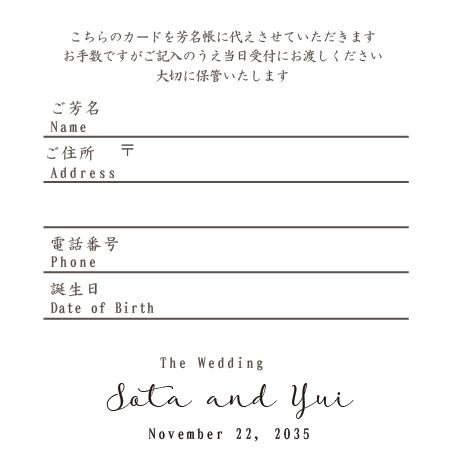 こちらのカードを芳名帳に代えさせていただきます
お手数ですがご記入のうえ当日受付にお渡しください
大切に保管いたします
ご芳名
Name
ご住所 〒
Address
電話番号
Phone
誕生日
Date of Birth
The Wedding
Sota and Yui
November 22, 2035